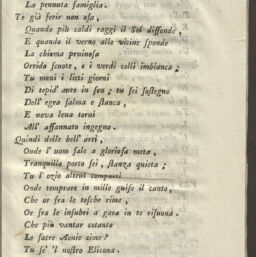 La pennuta famiglia.
Te già ferir non osa,
Quando più caldi raggi il Sol diffonde,
E quando il verno alle vicine sponde
La chioma pruinosa
Orrido scuote, e i verdi colli imbianca;
Tu meni i lieti giorni
Di tepid' aure in sen; tu sei sostegno
Dell' egra salma e stanca,
E nova lena torni
All' affannato ingegno.
Quindi delle bell' arti,
Onde l' uom sale a gloriosa meta,
Tranquillo porto sei, stanza quieta;
Tu l' ozio altrui comparti
Onde temprare in mille guise il canto,
Che or fra le tosche rime,
Or fra le insubri a gara in te risuona.
Che più vantar cotanto
Le sacre Aonie cime?
Tu se' 'l nostro Elicona.